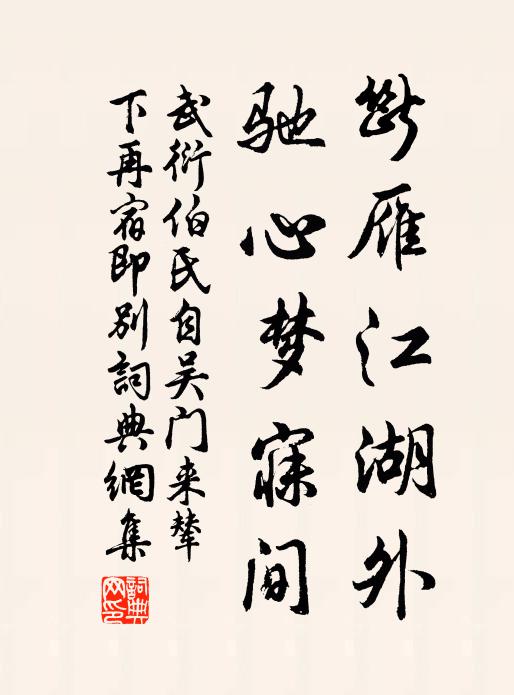 断雁江湖外
驰心梦寐间
武衍伯氏自吴门来辇
下再宿即别詞典網集